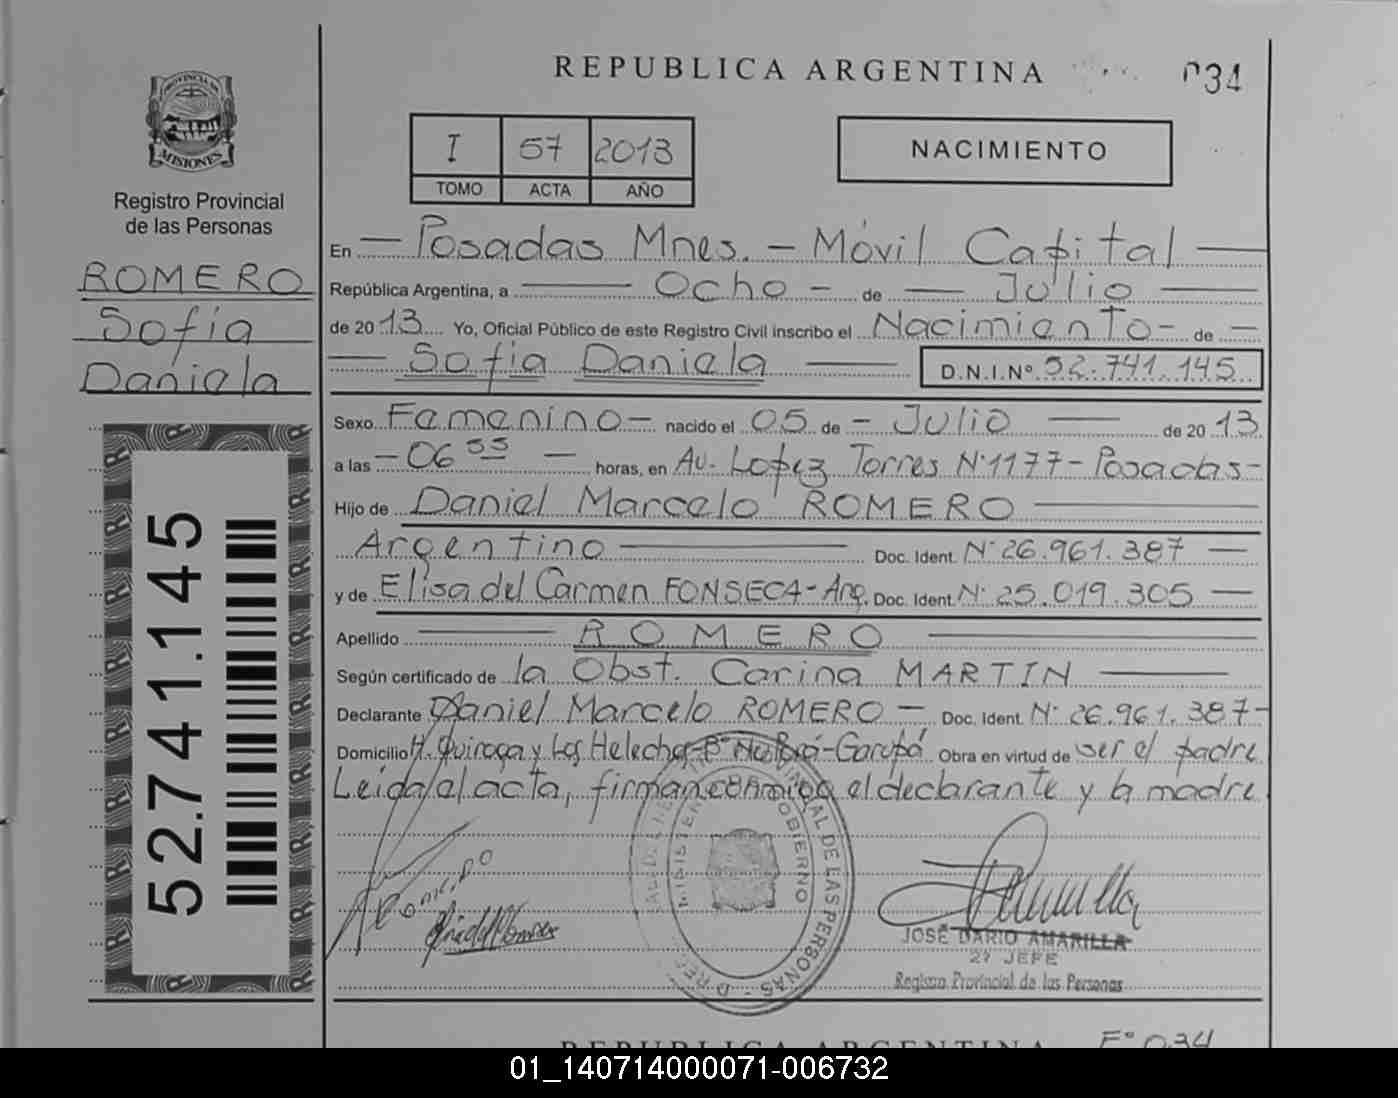 REPUBLICA ARGENTINA
034
PROVINCIA DE
MISIONES
Registro Provincial
de las Personas
ROMERO
Sofía
Daniela
52.741.145
I 57 2013
TOMO ACTA AÑO
NACIMIENTO
En — Posadas Mnes. — Móvil Capital —
República Argentina, a — Ocho — de — Julio —
de 2013 Yo, Oficial Público de este Registro Civil inscribo el Nacimiento — de —
— Sofia Daniela — D.N.I.Nº 52.741.145
Sexo Femenino — nacido el 05 de — Julio — de 2013
a las — 06 55 — horas, en Av. Lopez Torres Nº 1177 - Posadas -
Hijo de Daniel Marcelo ROMERO —
Argentino — Doc. Ident. Nº 26.961.387 —
y de Elisa del Carmen FONSECA - Arg. Doc. Ident. Nº 25.019.305 —
Apellido — ROMERO —
Según certificado de la Obst. Carina MARTIN —
Declarante Daniel Marcelo ROMERO — Doc. Ident. Nº 26.961.387 -
Domicilio H. Quiroga y Los Helechos - Bº Ñu Porá - Garupá Obra en virtud de ser el padre
Leída el acta, firman conmigo el declarante y la madre
MINISTERIO GOBIERNO
PROVINCIAL DE LAS PERSONAS
JOSÉ DARIO AMARILLA
2º JEFE
Registro Provincial de las Personas
REPUBLICA ARGENTINA
Fº 034
01_140714000071-006732